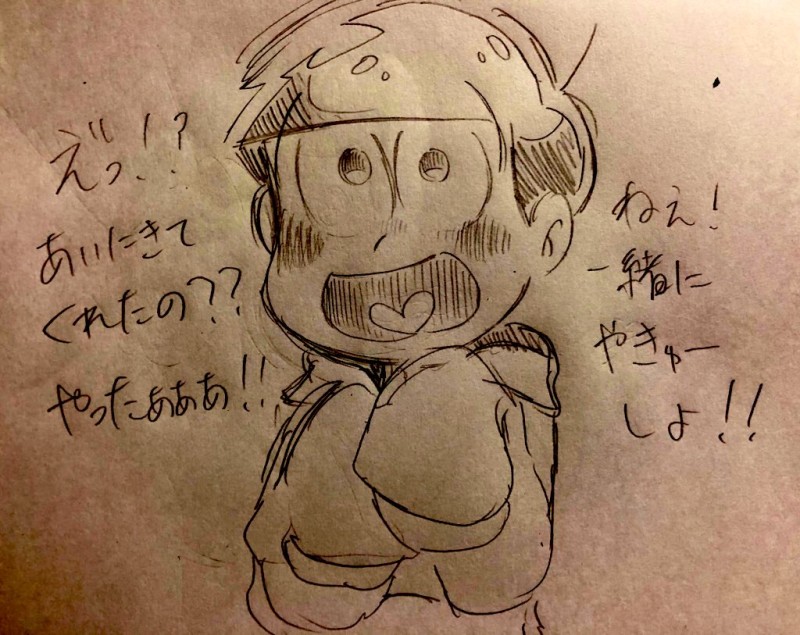 えっ!?
あいにきて
くれたの??
やったぁぁぁ!!
ねぇ!
一緒に
やきゅー
しよ!!